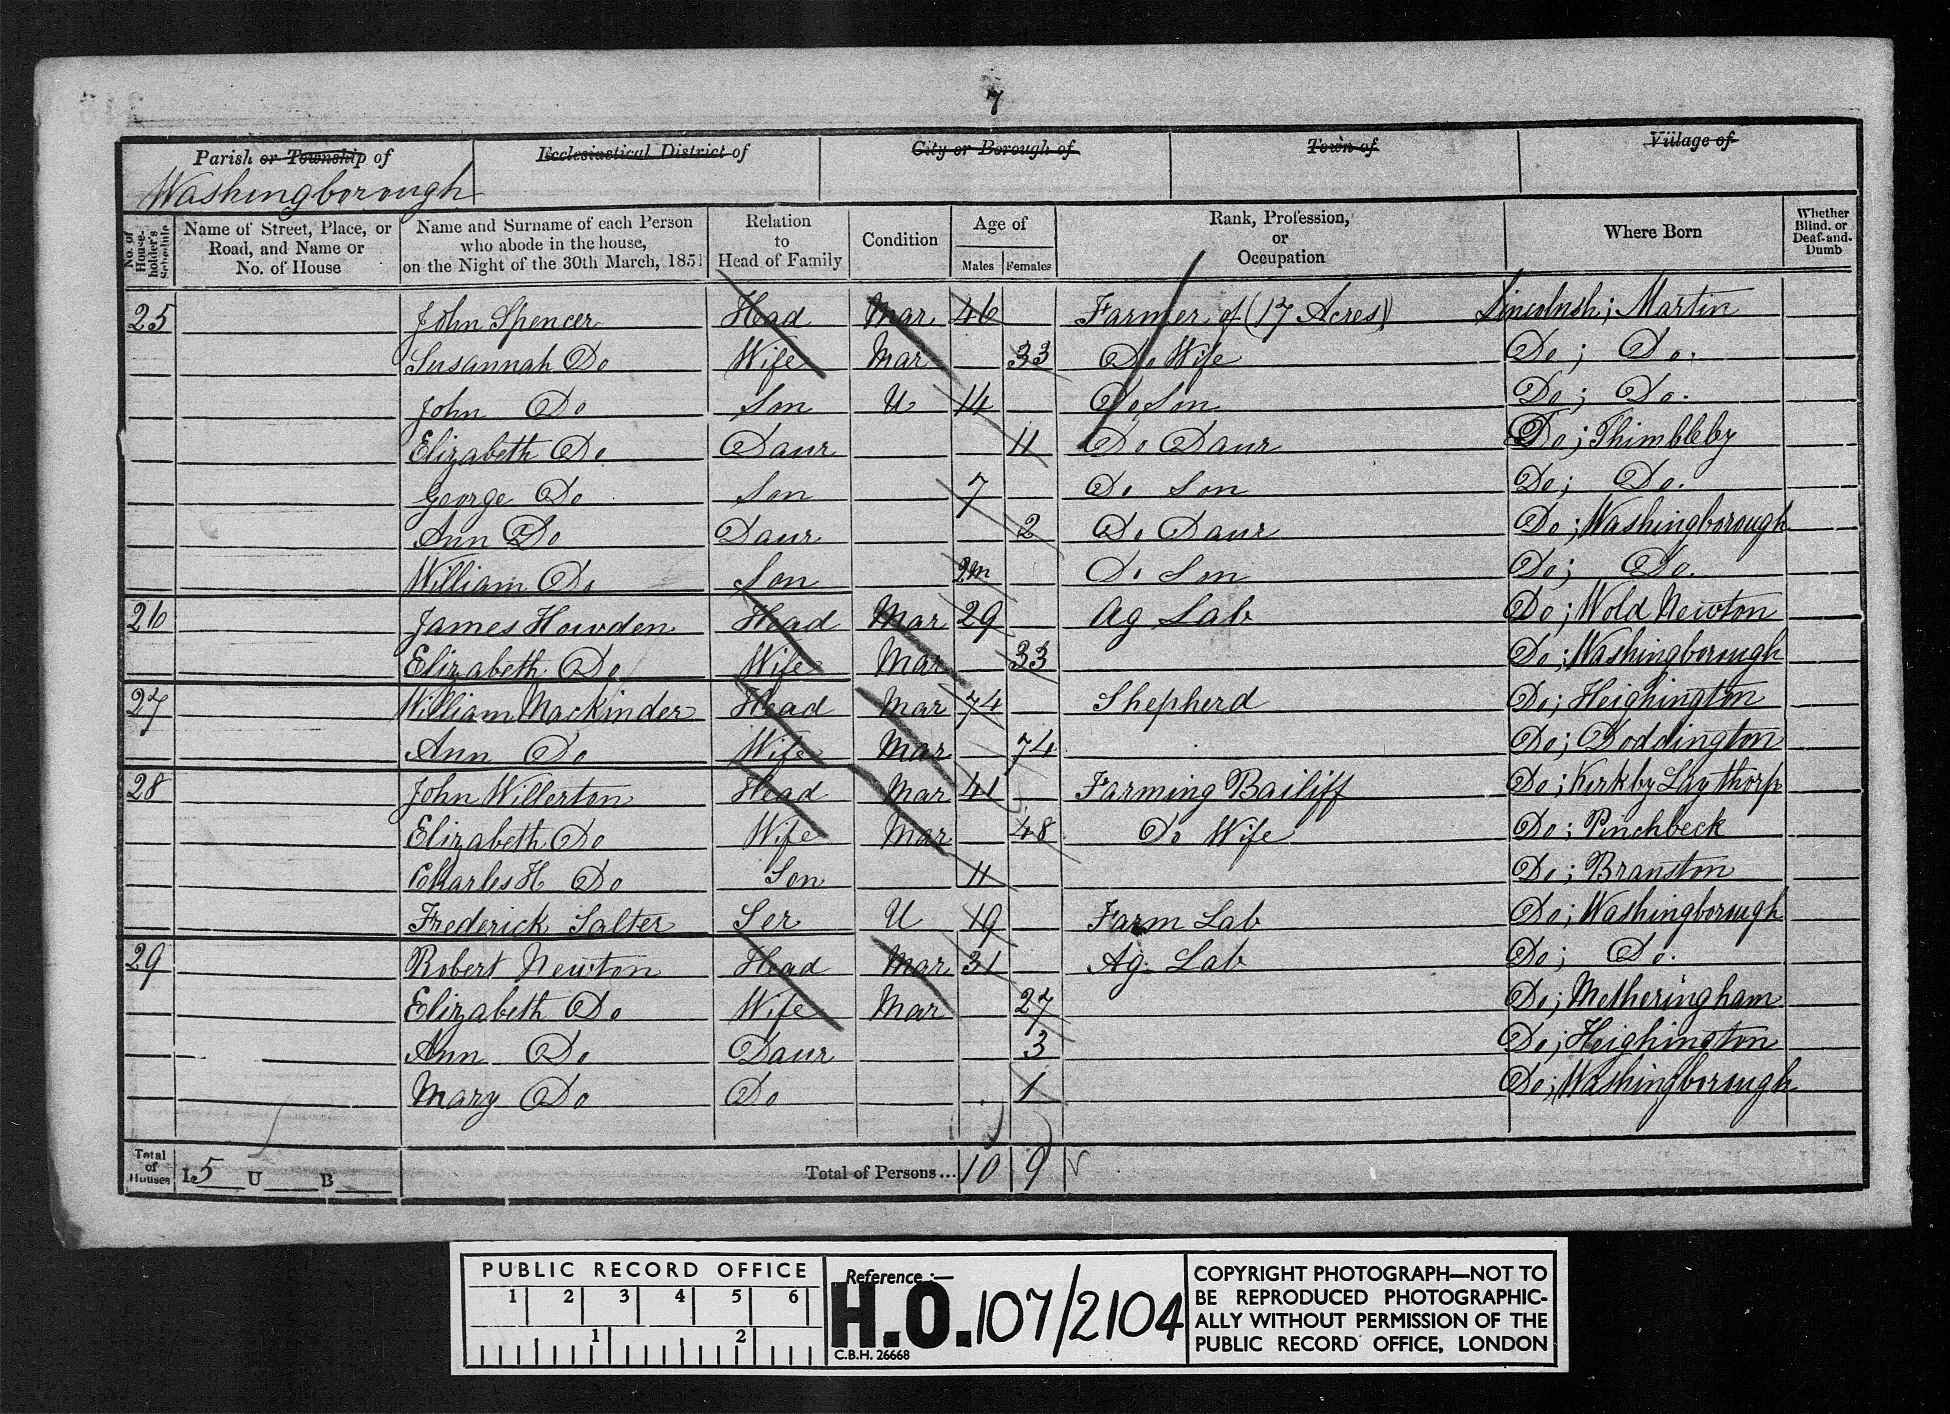 7
Parish or Township of Ecclesiastical District of City or Borough of Town of Village of
Washingborough
No. of House-holder's Schedule Name of Street, Place, or Road, and Name or No. of House Name and Surname of each Person who abode in the house, on the Night of the 30th March, 1851 Relation to Head of Family Condition Age of Males Females Rank, Profession, or Occupation Where Born Whether Blind, or Deaf-and-Dumb
25 John Spencer Head Mar 46 Farmer of (17 Acres) Lincolnsh; Martin
Susannah Do Wife Mar 33 Do Wife Do; Do.
John Do Son U 14 Do Son Do; Do.
Elizabeth Do Daur 11 Do Daur Do; Thimbleby
George Do Son 7 Do Son Do; Do.
Ann Do Daur 2 Do Daur Do; Washingborough
William Do Son 2m Do Son Do; Do.
26 James Howden Head Mar 29 Ag Lab Do; Wold Newton
Elizabeth Do Wife Mar 33 Do; Washingborough
27 William Mackinder Head Mar 74 Shepherd Do; Heighington
Ann Do Wife Mar 74 Do; Doddington
28 John Willerton Head Mar 41 Farming Bailiff Do; Kirkby Laythorp
Elizabeth Do Wife Mar 48 Do Wife Do; Pinchbeck
Charles H Do Son 11 Do; Branston
Frederick Salter Ser U 19 Farm Lab Do; Washingborough
29 Robert Newton Head Mar 31 Ag. Lab Do; Do.
Elizabeth Do Wife Mar 27 Do; Metheringham
Ann Do Daur 3 Do; Heighington
Mary Do Do 1 Do; Washingborough
Total of Houses I 5 U B Total of Persons... 10 9
PUBLIC RECORD OFFICE
1 2 3 4 5 6
1 2
Reference :—
H.O. 107/2104
C.B.H. 26668
COPYRIGHT PHOTOGRAPH—NOT TO
BE REPRODUCED PHOTOGRAPHIC-
ALLY WITHOUT PERMISSION OF THE
PUBLIC RECORD OFFICE, LONDON